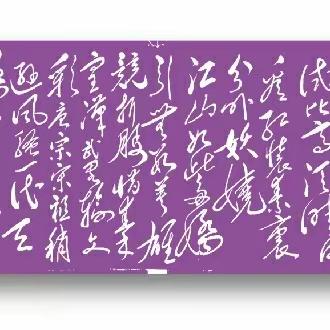 试比高须晴日
看红装素裹
分外妖娆
江山如此多娇
引无数英雄
竞折腰惜秦
皇汉武略输文
采唐宗宋祖稍
逊风骚一代天